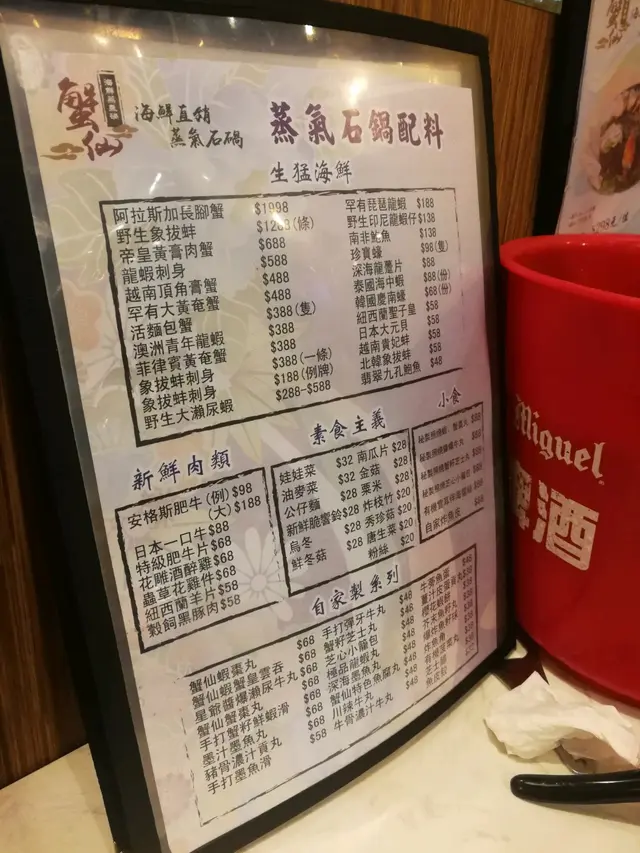 蟹仙
海鮮直銷
蒸氣石鍋
蒸氣石鍋配料
生猛海鮮
阿拉斯加長腳蟹 $1998
野生象拔蚌 $1288(條)
帝皇黃膏肉蟹 $688
龍蝦刺身 $588
越南頂角膏蟹 $488
罕有大黃奄蟹 $488
活麵包蟹 $388(隻)
澳洲青年龍蝦 $388
菲律賓黃奄蟹 $388
象拔蚌刺身 $388(一條)
象拔蚌刺身 $188(例牌)
野生大瀨尿蝦 $288-$588
罕有琵琶龍蝦 $188
野生印尼龍蝦仔 $138
南非鮑魚 $138
珍寶蠔 $98(隻)
深海龍躉片 $88
泰國海中蝦 $88(份)
韓國慶南蠔 $68(份)
紐西蘭聖子皇 $58
日本大元貝 $58
越南貴妃蚌 $58
北韓象拔蚌 $58
翡翠九孔鮑魚 $48
新鮮肉類
安格斯肥牛 (例) $98
(大) $188
日本一口牛 $88
特級肥牛片 $68
花雕酒醉雞 $68
蟲草花雞件 $68
紐西蘭羊片 $58
穀飼黑豚肉 $58
素食主義
娃娃菜 $32
油麥菜 $32
公仔麵 $28
新鮮脆響鈴 $28
烏冬 $28
鮮冬菇 $28
南瓜片 $28
金菇 $28
粟米 $28
炸枝竹 $20
秀珍菇 $20
唐生菜 $20
粉絲 $20
小食
自家炸魚皮
自家製系列
蟹仙蝦棗丸 $68
蟹仙蝦蟹皇雲吞 $68
星爺醬爆瀨尿牛丸 $68
蟹仙蟹棗丸 $68
手打蟹籽鮮蝦滑 $68
墨汁墨魚丸 $68
豬骨濃汁貢丸 $68
手打墨魚滑 $58
手打彈牙牛丸 $48
蟹籽芝士丸 $48
芝心小籠包 $48
極品龍蝦丸 $48
深海墨魚丸 $48
蟹仙特色魚腐丸 $48
川辣牛丸 $48
牛骨濃汁牛丸 $48
Miguel
啤酒